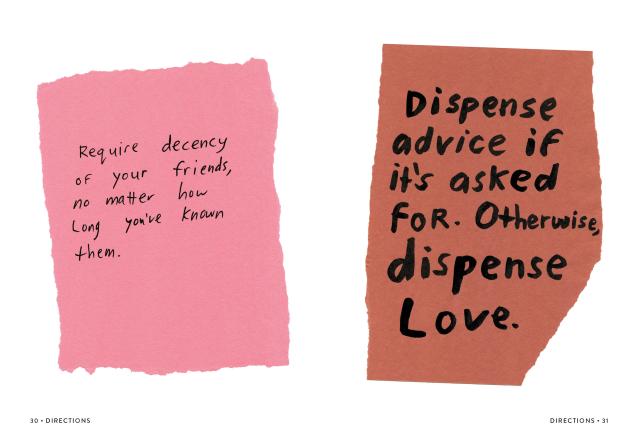 Require decency
of your friends,
no matter how
Long you've known
them.
Dispense
advice if
it's asked
FOR. Otherwise,
dispense
Love.
30 • DIRECTIONS
DIRECTIONS • 31